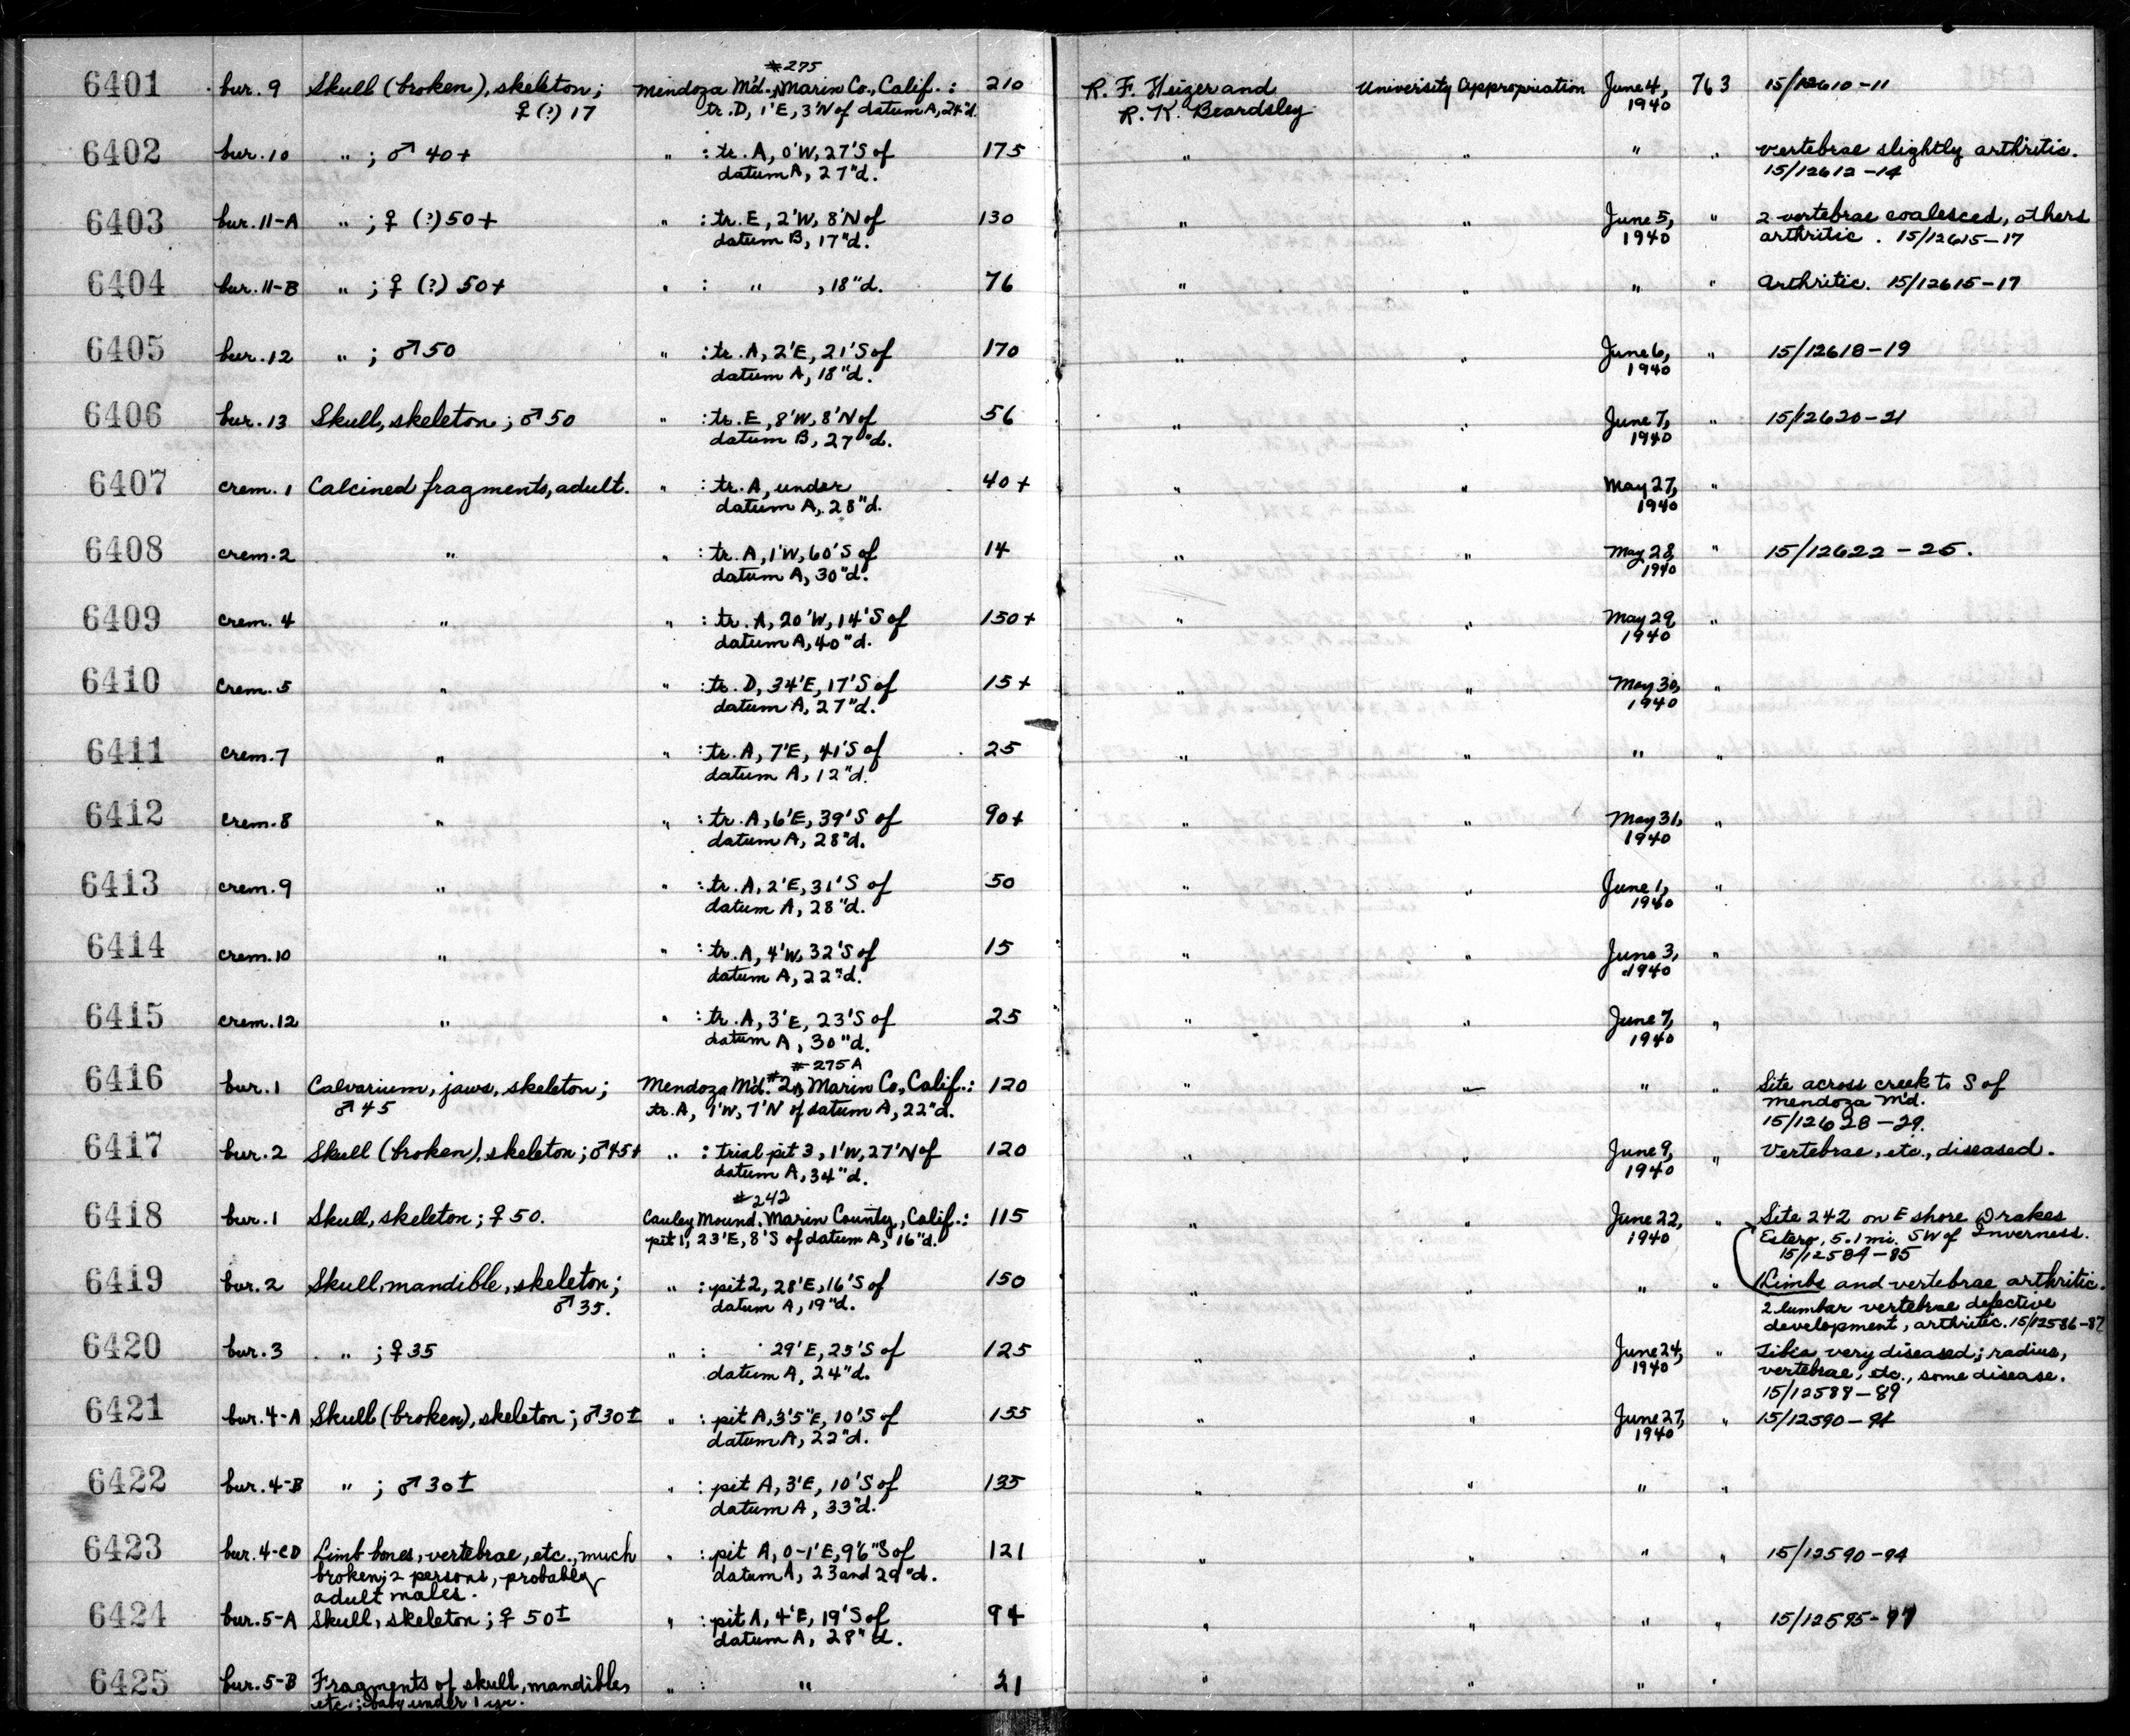 #275
6401 bur. 9 Skull (broken), skeleton; Mendoza M'd., Marin Co., Calif.: 210 R. F. Heizer and University Appropriation June 4, 763 15/12610-11
♀(?) 17 tr. D, 1'E, 3'N of datum A, 24"d. R. K. Beardsley 1940
6402 bur. 10 " ; ♂ 40+ " : tr. A, 0'W, 27'S of 175 " " " " vertebrae slightly arthritic.
datum A, 27"d. 15/12612-14
6403 bur. 11-A " ; ♀ (?) 50+ " : tr. E, 2'W, 8'N of 130 " " June 5, " 2 vertebrae coalesced, others
datum B, 17"d. 1940 arthritic. 15/12615-17
6404 bur. 11-B " ; ♀ (?) 50+ " : " , 18"d. 76 " " " " Arthritic. 15/12615-17
6405 bur. 12 " ; ♂ 50 " : tr. A, 2'E, 21'S of 170 " " June 6, " 15/12618-19
datum A, 18"d. 1940
6406 bur. 13 Skull, skeleton; ♂ 50 " : tr. E, 8'W, 8'N of 56 " " June 7, " 15/12620-21
datum B, 27"d. 1940
6407 crem. 1 Calcined fragments, adult. " : tr. A, under 40+ " " May 27, "
datum A, 28"d. 1940
6408 crem. 2 " " : tr. A, 1'W, 60'S of 14 " " May 28, " 15/12622-25.
datum A, 30"d. 1940
6409 crem. 4 " " : tr. A, 20'W, 14'S of 150+ " " May 29, "
datum A, 40"d. 1940
6410 crem. 5 " " : tr. D, 34'E, 17'S of 15+ " " May 30, "
datum A, 27"d. 1940
6411 crem. 7 " " : tr. A, 7'E, 41'S of 25 " " " "
datum A, 12"d.
6412 crem. 8 " " : tr. A, 6'E, 39'S of 90+ " " May 31, "
datum A, 28"d. 1940
6413 crem. 9 " " : tr. A, 2'E, 31'S of 50 " " June 1, "
datum A, 28"d. 1940
6414 crem. 10 " " : tr. A, 4'W, 32'S of 15 " " June 3, "
datum A, 22"d. 1940
6415 crem. 12 " " : tr. A, 3'E, 23'S of 25 " " June 7, "
datum A, 30"d. 1940
#275A
6416 bur. 1 Calvarium, jaws, skeleton; Mendoza M'd. #2, Marin Co., Calif.: 120 " " " " Site across creek to S of
♂ 45 tr. A, 9'W, 7'N of datum A, 22"d. Mendoza M'd.
15/12628-29.
6417 bur. 2 Skull (broken), skeleton; ♂ 45+ " : trial pit 3, 1'W, 27'N of 120 " " June 9, " Vertebrae, etc., diseased.
datum A, 34"d. 1940
#242
6418 bur. 1 Skull, skeleton; ♀ 50. Cauley Mound, Marin County, Calif.: 115 " " June 22, " Site 242 on E shore Drakes
pit 1, 23'E, 8'S of datum A, 16"d. 1940 Estero, 5.1 mi. SW of Inverness.
15/12584-85
6419 bur. 2 Skull, mandible, skeleton; " : pit 2, 28'E, 16'S of 150 " " " " Limbs and vertebrae arthritic.
♂ 35. datum A, 19"d. 2 lumbar vertebrae defective
development, arthritic. 15/12586-87
6420 bur. 3 " ; ♀ 35 " : " 29'E, 25'S of 125 " " June 24, " Tibia very diseased; radius,
datum A, 24"d. 1940 vertebrae, etc., some disease.
15/12588-89
6421 bur. 4-A Skull (broken), skeleton; ♂ 30± " : pit A, 3'5"E, 10'S of 155 " " June 27, " 15/12590-94
datum A, 22"d. 1940
6422 bur. 4-B " ; ♂ 30± " : pit A, 3'E, 10'S of 135 " " " "
datum A, 33"d.
6423 bur. 4-CD Limb bones, vertebrae, etc., much " : pit A, 0-1'E, 9'6"S of 121 " " " " 15/12590-94
broken; 2 persons, probably datum A, 23 and 29"d.
adult males.
6424 bur. 5-A Skull, skeleton; ♀ 50± " : pit A, 4'E, 19'S of 94 " " " " 15/12595-97
datum A, 28"d.
6425 bur. 5-B Fragments of skull, mandible, " : " 21 " " " "
etc.; baby under 1 yr.